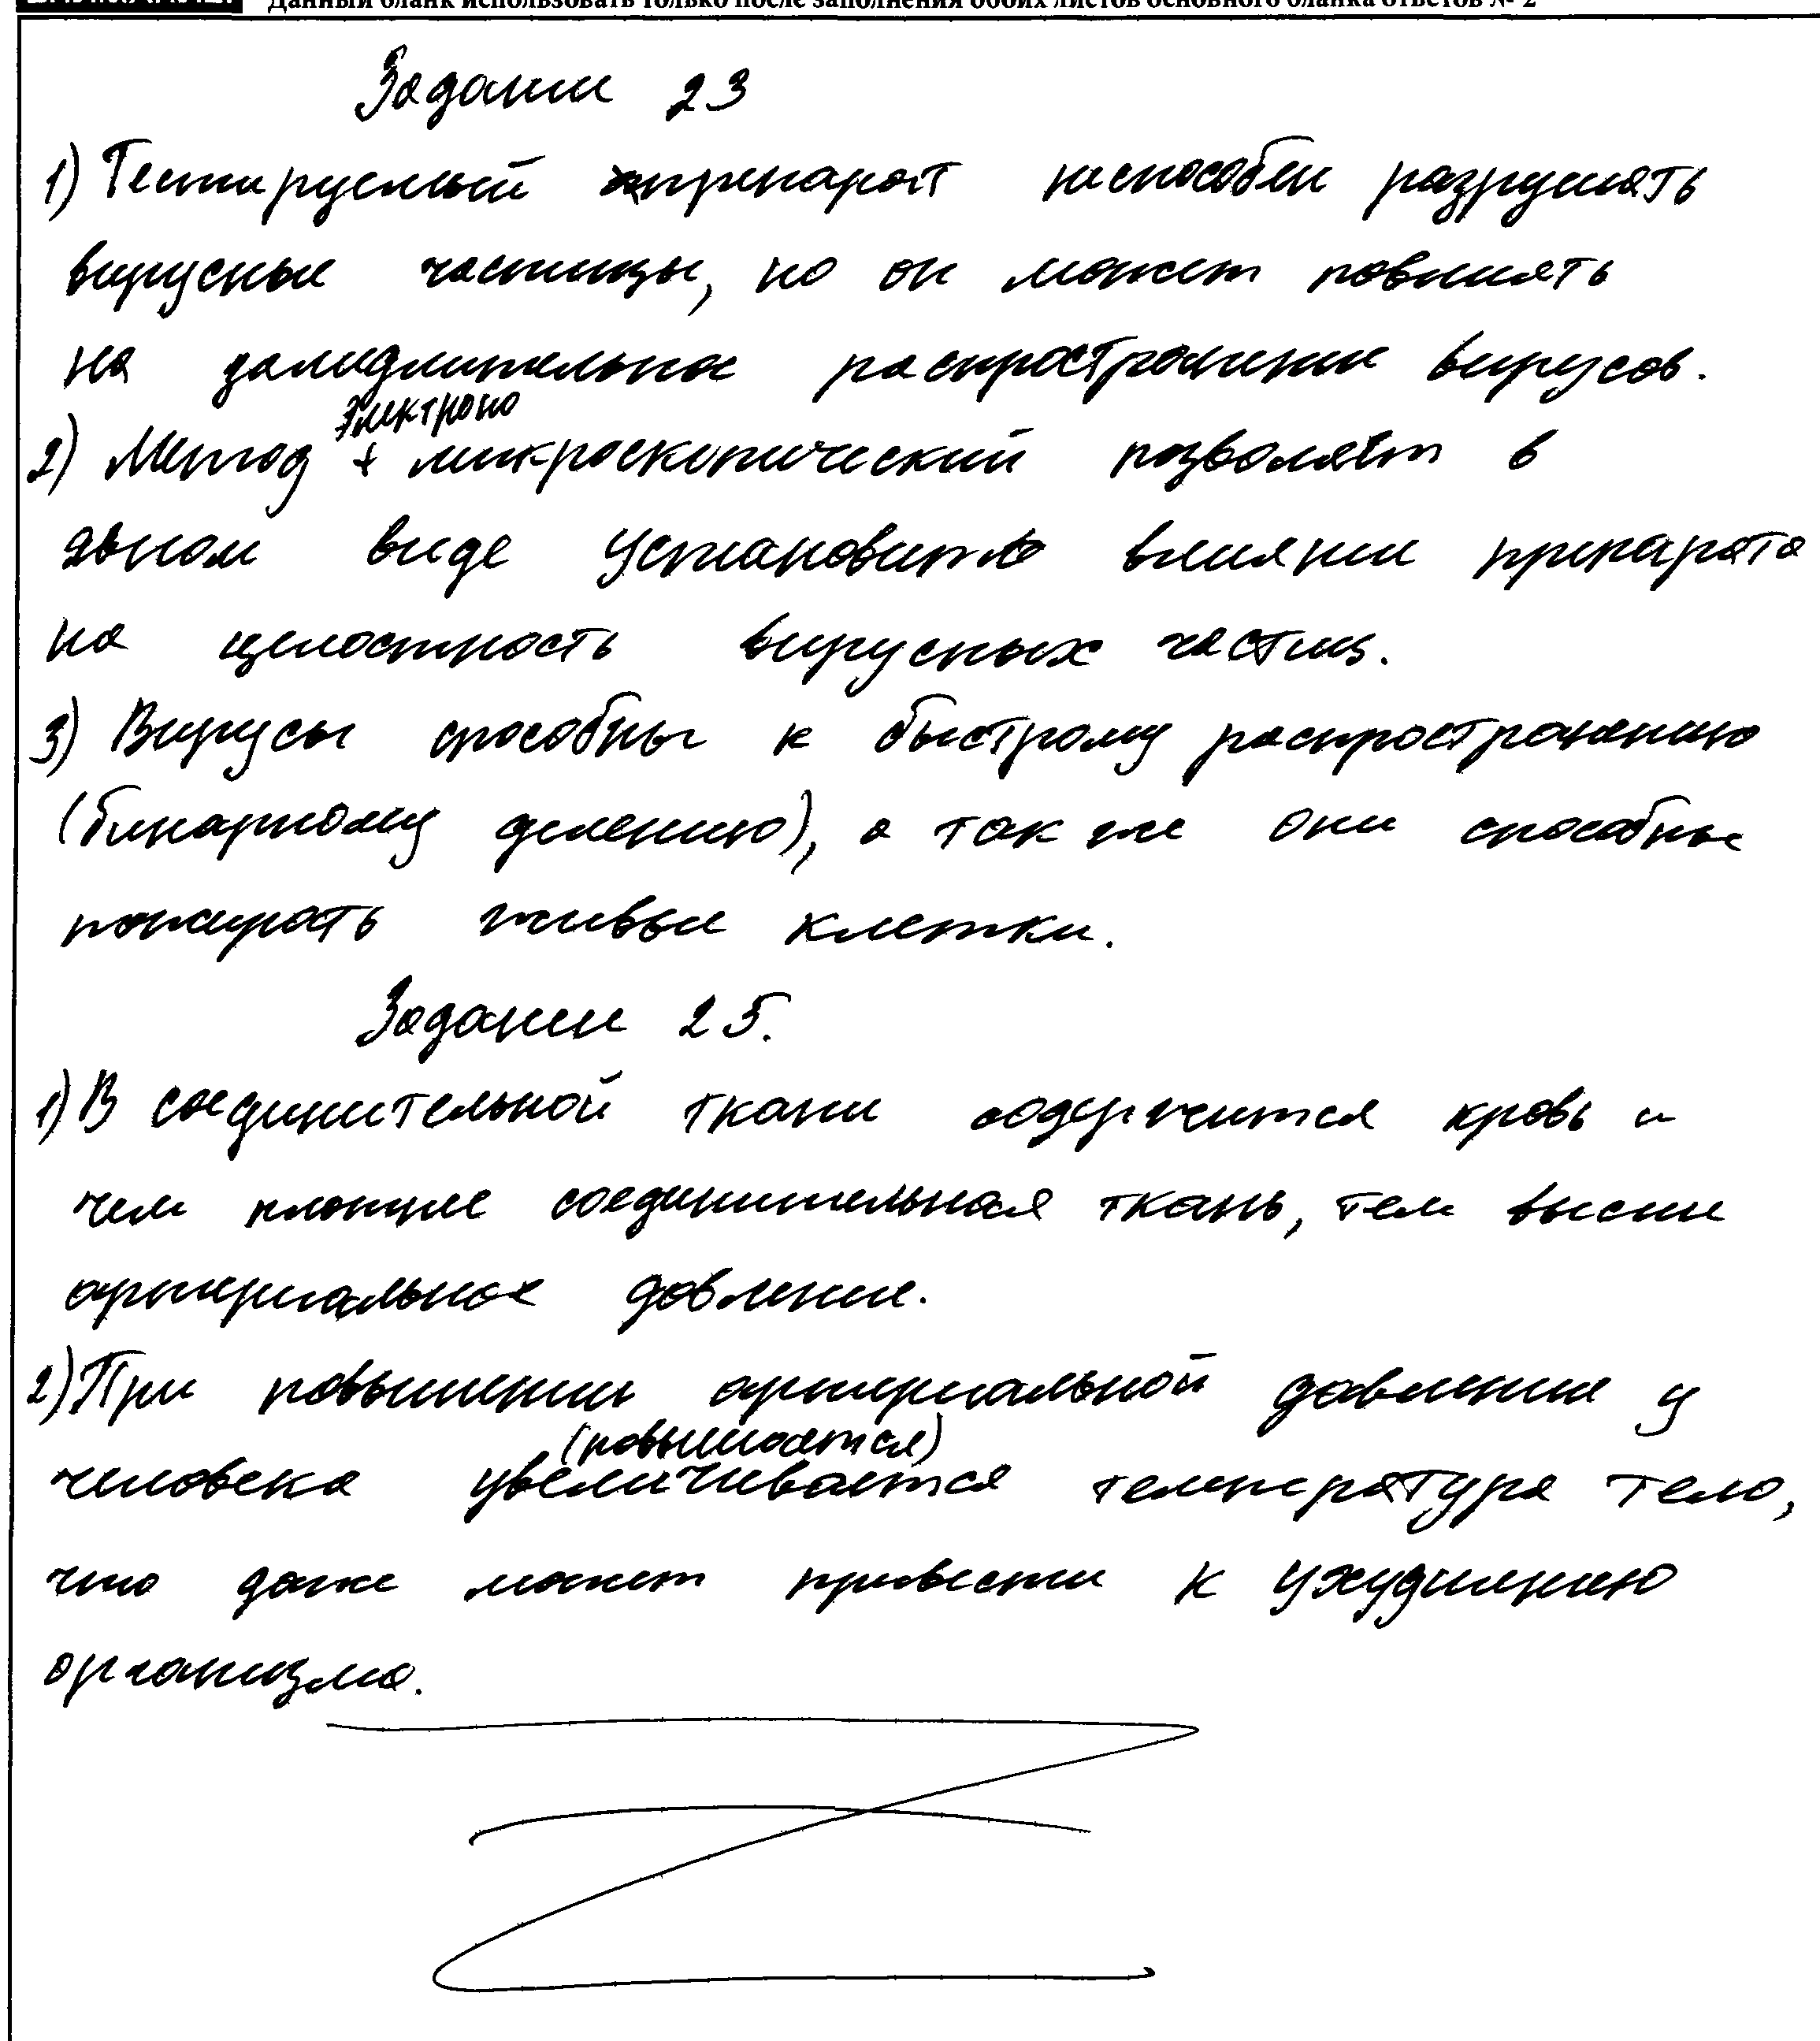 Данный бланк использовать только после заполнения обоих листов основного бланка ответов № 2
Задание 23
1) Тестируемый препарат неспособен разрушать
вирусные частицы, но он может повлиять
на распространение вирусов.
электроно
2) Метод микроскопический позволяет в
явном виде установить влияние препарата
на целостность вирусных частиц.
3) Вирусы способны к быстрому распространению
(бинарному делению), а так же они способны
пожирать живые клетки.
Задание 25.
1) В соединительной ткани содержится кровь и
чем плотнее соединительная ткань, тем выше
артериальное давление.
2) При повышении артериальной давление у
(повышается)
человека увеличивается температура тела,
что даже может привести к ухудшению
организма.